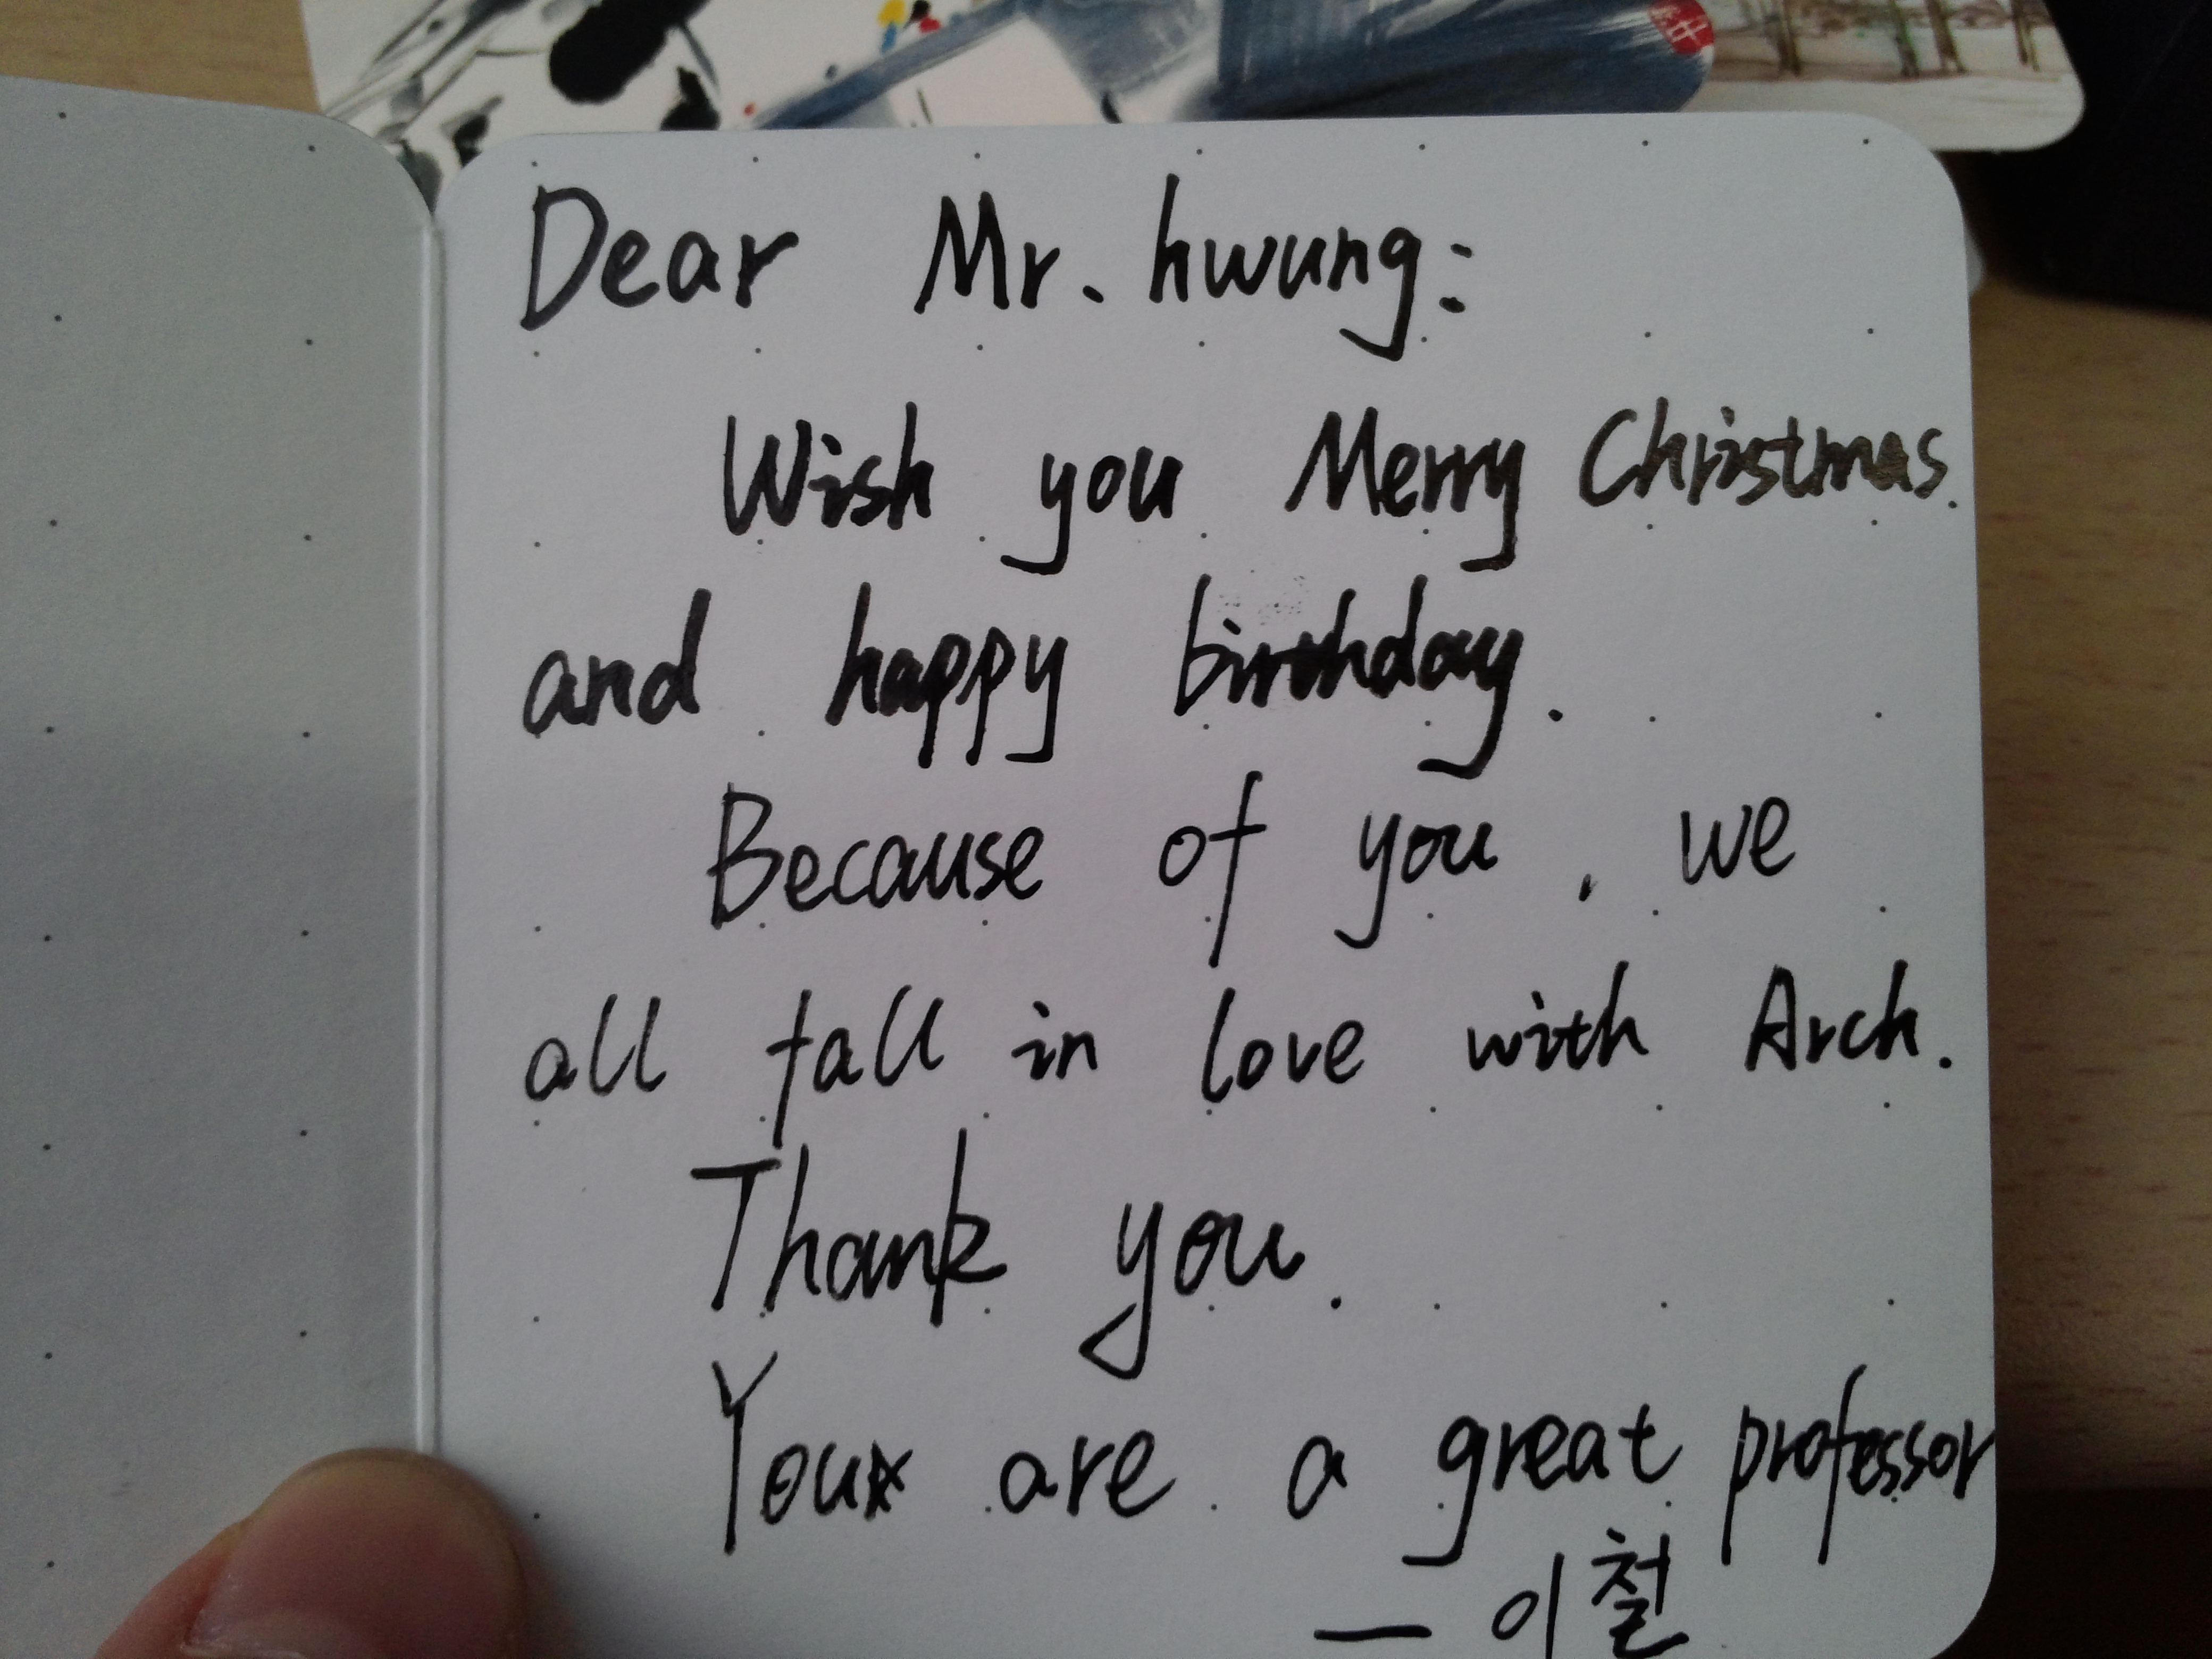 Dear Mr. hwung:
Wish you Merry Christmas.
and happy birthday.
Because of you, we
all fall in love with Arch.
Thank you.
You are a great professor
— 이철